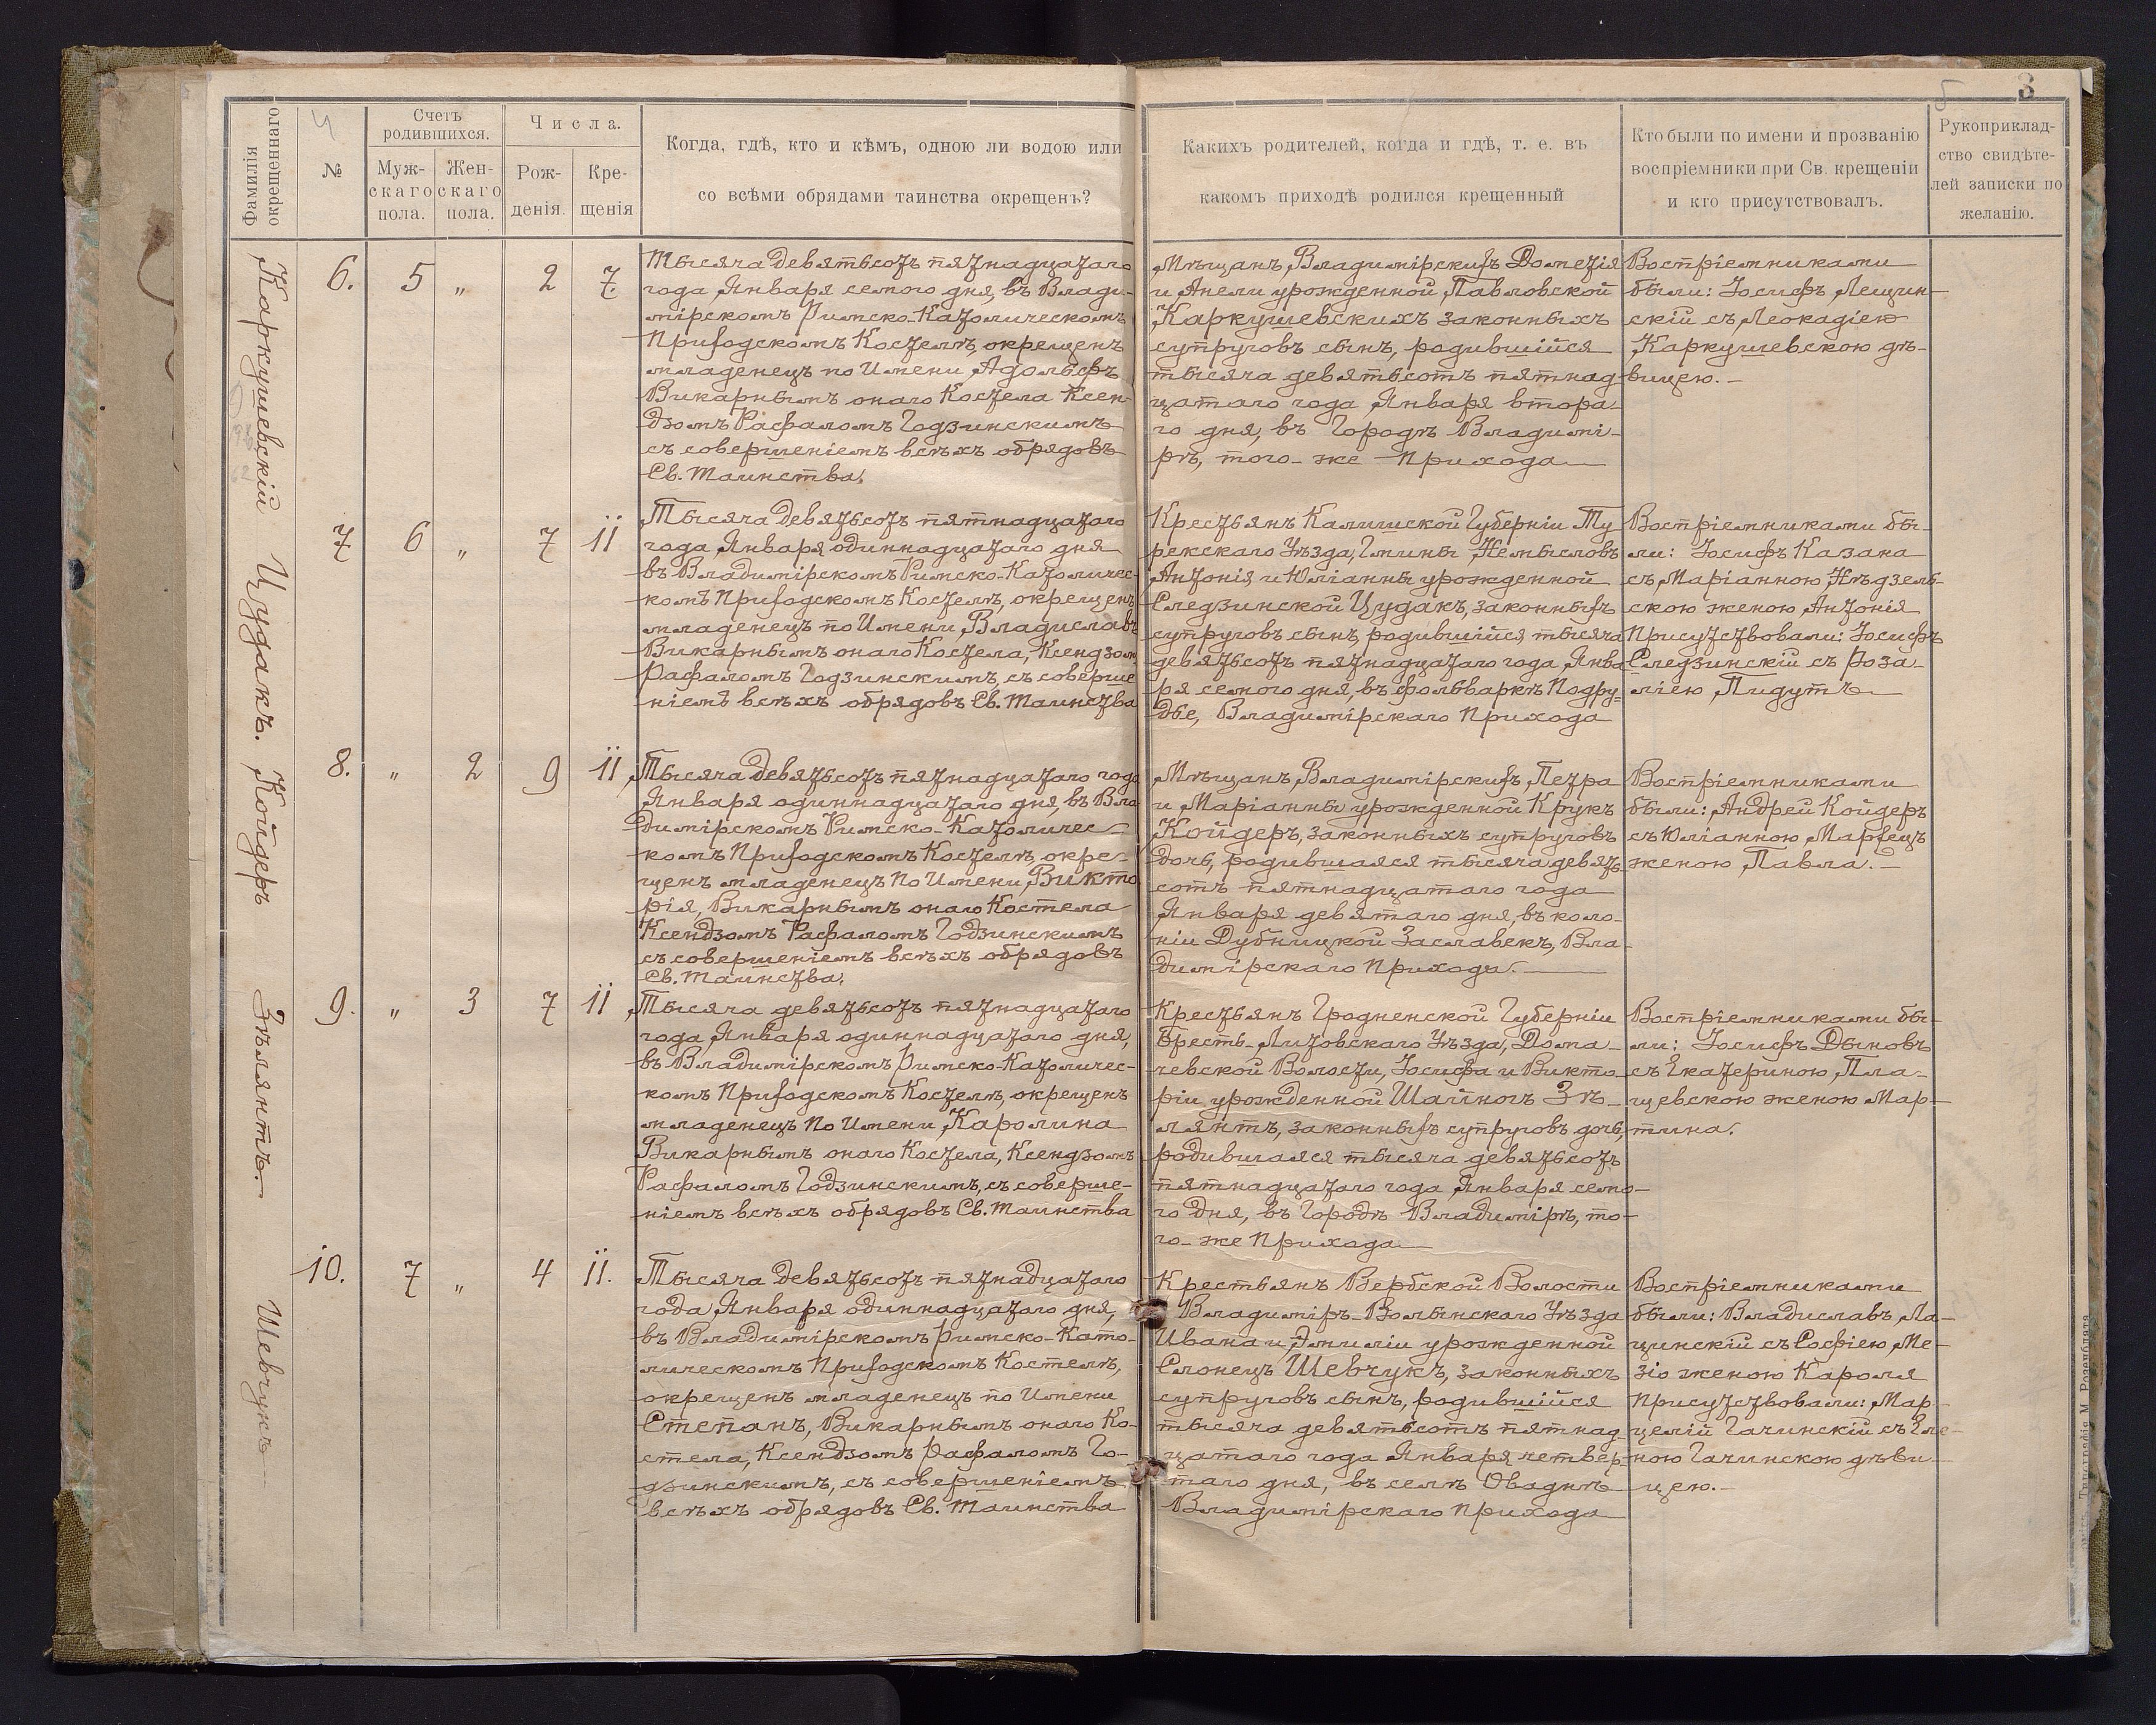 3
Фамилія окрещеннаго
№
Счетъ родившихся.
Муж-
скаго
пола.
Жен-
скаго
пола.
Числа.
Рож-
денія.
Кре-
щенія
Когда, гдѣ, кто и кѣмъ, одною ли водою или
со всѣми обрядами таинства окрещенъ?
Какихъ родителей, когда и гдѣ, т. е. въ
какомъ приходѣ родился крещенный
Кто были по имени и прозванію
воспріемники при Св. крещеніи
и кто присутствовалъ.
Рукоприклад-
ство свидѣте-
лей записки по
желанію.
Каркушевскій
6. 5 „ 2 7.
Тысяча девятьсотъ пятнадцатаго
года Января семого дня, въ Влади-
мірскомъ Римско-Католическомъ
Приходскомъ Костелѣ, окрещенъ
младенецъ по Имени Адольфъ
Викарнымъ онаго Костела Ксен-
дзомъ Рафаломъ Годзинскимъ
съ совершеніемъ всѣхъ обрядовъ
Св. Таинства.
Мѣщанъ Владимірскихъ Дометія
и Анели урожденной Павловской
Каркушевскихъ законныхъ
супруговъ сынъ, родившійся
тысяча девятьсотъ пятнад-
цатаго года Января втора-
го дня, въ Городѣ Владимі-
рѣ, того-же Прихода
Воспріемниками
были: Іосифъ Лещин-
скій съ Леокадіею
Каркушевскою дѣ-
вицею.
Цудакъ.
7 6 „ 7 11
Тысяча девятьсотъ пятнадцатаго
года Января одиннадцатаго дня
въ Владимірскомъ Римско-Католичес-
комъ Приходскомъ Костелѣ, окрещенъ
младенецъ по Имени Владиславъ
Викарнымъ онаго Костела, Ксендзомъ
Рафаломъ Годзинскимъ, съ соверше
ніемъ всѣхъ обрядовъ Св. Таинства
Крестьянъ Калишской Губерніи Ту
рекскаго Уѣзда, Гмины Немысловъ
Антонія и Юліанны урожденной
Следзинской Цудакъ, законныхъ
супруговъ сынъ, родившійся тысяча
девятьсотъ пятнадцатаго года Янва
ря семого дня, въ фольваркѣ Подру-
дье, Владимірскаго Прихода
Воспріемниками бы-
ли: Іосифъ Казана
съ Маріанною Нѣдзель-
скою женою Антонія
Присутствовали: Іосифъ
Следзинскій съ Роза-
ліею Пидутъ
Койдеръ
8. „ 2 9 11
Тысяча девятьсотъ пятнадцатаго года
Января одиннадцатаго дня, въ Вла-
димірскомъ Римско-Католичес-
комъ Приходскомъ Костелѣ, окре-
щенъ младенецъ по Имени Викто
рія, Викарнымъ онаго Костела
Ксендзомъ Рафаломъ Годзинскимъ
съ совершеніемъ всѣхъ обрядовъ
Св. Таинства.
Мѣщанъ Владимірскихъ Петра
и Маріанны урожденной Крукъ
Койдеръ, законныхъ супруговъ
дочь, родившаяся тысяча девять-
сотъ пятнадцатаго года
Января девятаго дня, въ коло-
ніи Дубницкой Заславекъ, Вла-
димірскаго Прихода.
Воспріемниками
были: Андрей Койдеръ
съ Юліанною Мархецъ
женою Павла.
Зѣлянтъ.
9. „ 3 7 11
Тысяча девятьсотъ пятнадцатаго
года Января одиннадцатаго дня,
въ Владимірскомъ Римско-Католичес-
комъ Приходскомъ Костелѣ, окрещенъ
младенецъ по Имени Каролина
Викарнымъ онаго Костела, Ксендзомъ
Рафаломъ Годзинскимъ, съ соверше-
ніемъ всѣхъ обрядовъ Св. Таинства
Крестьянъ Гродненской Губерніи
Брестъ-Литовскаго Уѣзда, Дома-
чевской Волости, Іосифа и Викто-
ріи урожденной Шайногъ Зѣ-
лянтъ, законныхъ супруговъ дочь,
родившаяся тысяча девятьсотъ
пятнадцатаго года Января семо-
го дня, въ Городѣ Владимірѣ, то-
го-же Прихода
Воспріемниками бы-
ли: Іосифъ Дыновъ
съ Екатериною Пла-
щевскою женою Мар-
тина.
Шевчукъ
10. 7 „ 4 11.
Тысяча девятьсотъ пятнадцатаго
года Января одиннадцатаго дня,
въ Владимірскомъ Римско-Като-
лическомъ Приходскомъ Костелѣ,
окрещенъ младенецъ по Имени
Степанъ, Викарнымъ онаго Ко-
стела, Ксендзомъ Рафаломъ Го-
дзинскимъ, съ совершеніемъ
всѣхъ обрядовъ Св. Таинства
Крестьянъ Вербской Волости
Владиміръ-Волынскаго Уѣзда
Ивана и Эмиліи урожденной
Слонецъ Шевчукъ, законныхъ
супруговъ сынъ, родившійся
тысяча девятьсотъ пятнад-
цатаго года Января четвер-
таго дня, въ селѣ Оваднѣ
Владимірскаго Прихода
Воспріемниками
были: Владиславъ Ла-
щинскій съ Софіею Ме-
зіо женою Кароля
Присутствовали: Мар-
целій Гачинскій съ Еле-
ною Гачинскою дѣви-
цею.
Типографія М. Розенблата